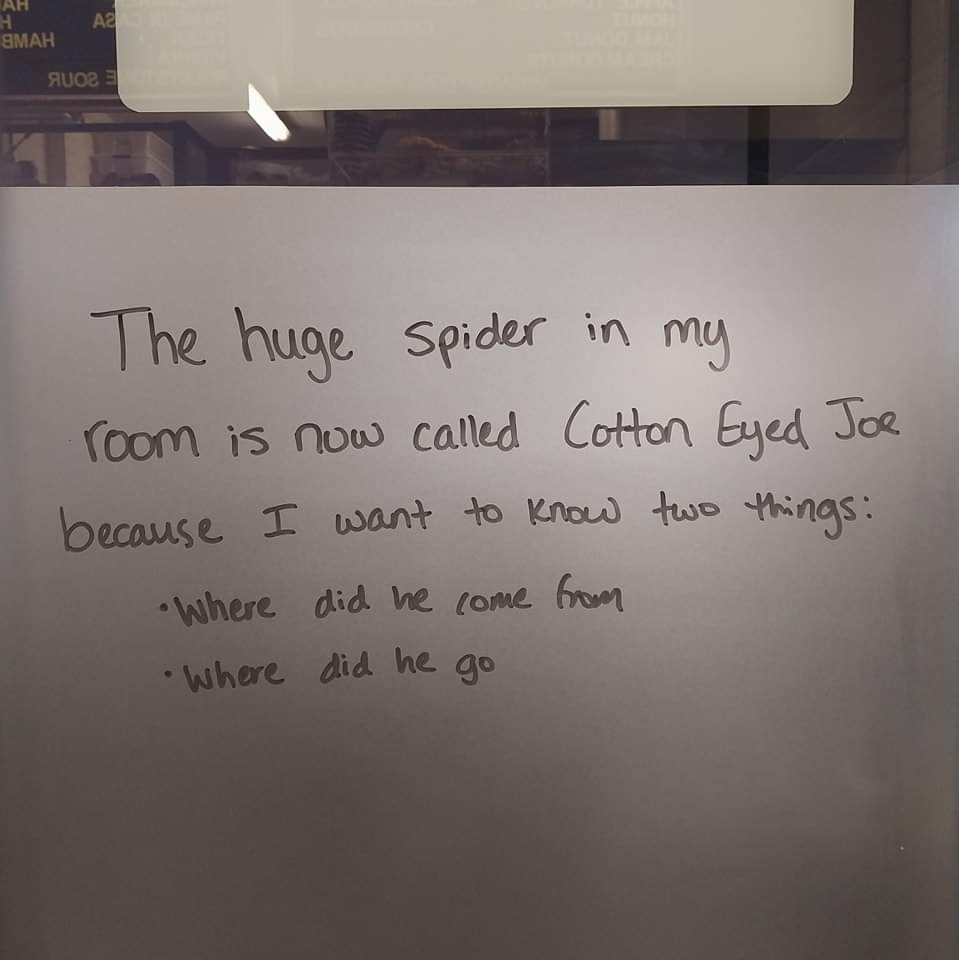 HA
H
HAMB
CASA
SOUR
JAM DONUT
CREAM DONUTS
The huge spider in my
room is now called Cotton Eyed Joe
because I want to know two things:
• Where did he come from
• Where did he go